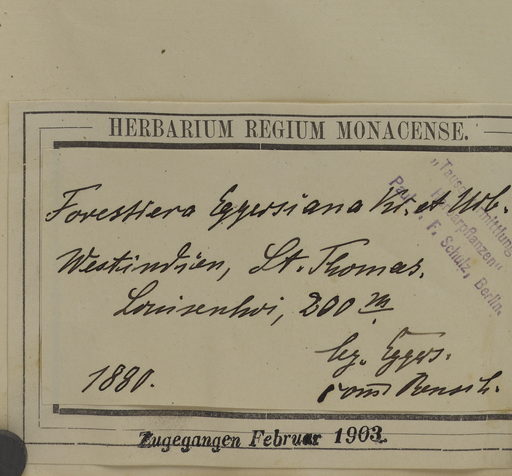 HERBARIUM REGIUM MONACENSE.
Forestiera Eggersiana Kr. et Urb.
Westindien, St. Thomas.
Louisenhoi, 200 m
leg. Eggers.
1880.
Zugegangen Februar 1903.
„Tauschvermittlung
Herbarpflanzen“
F. Schulz, Berlin.